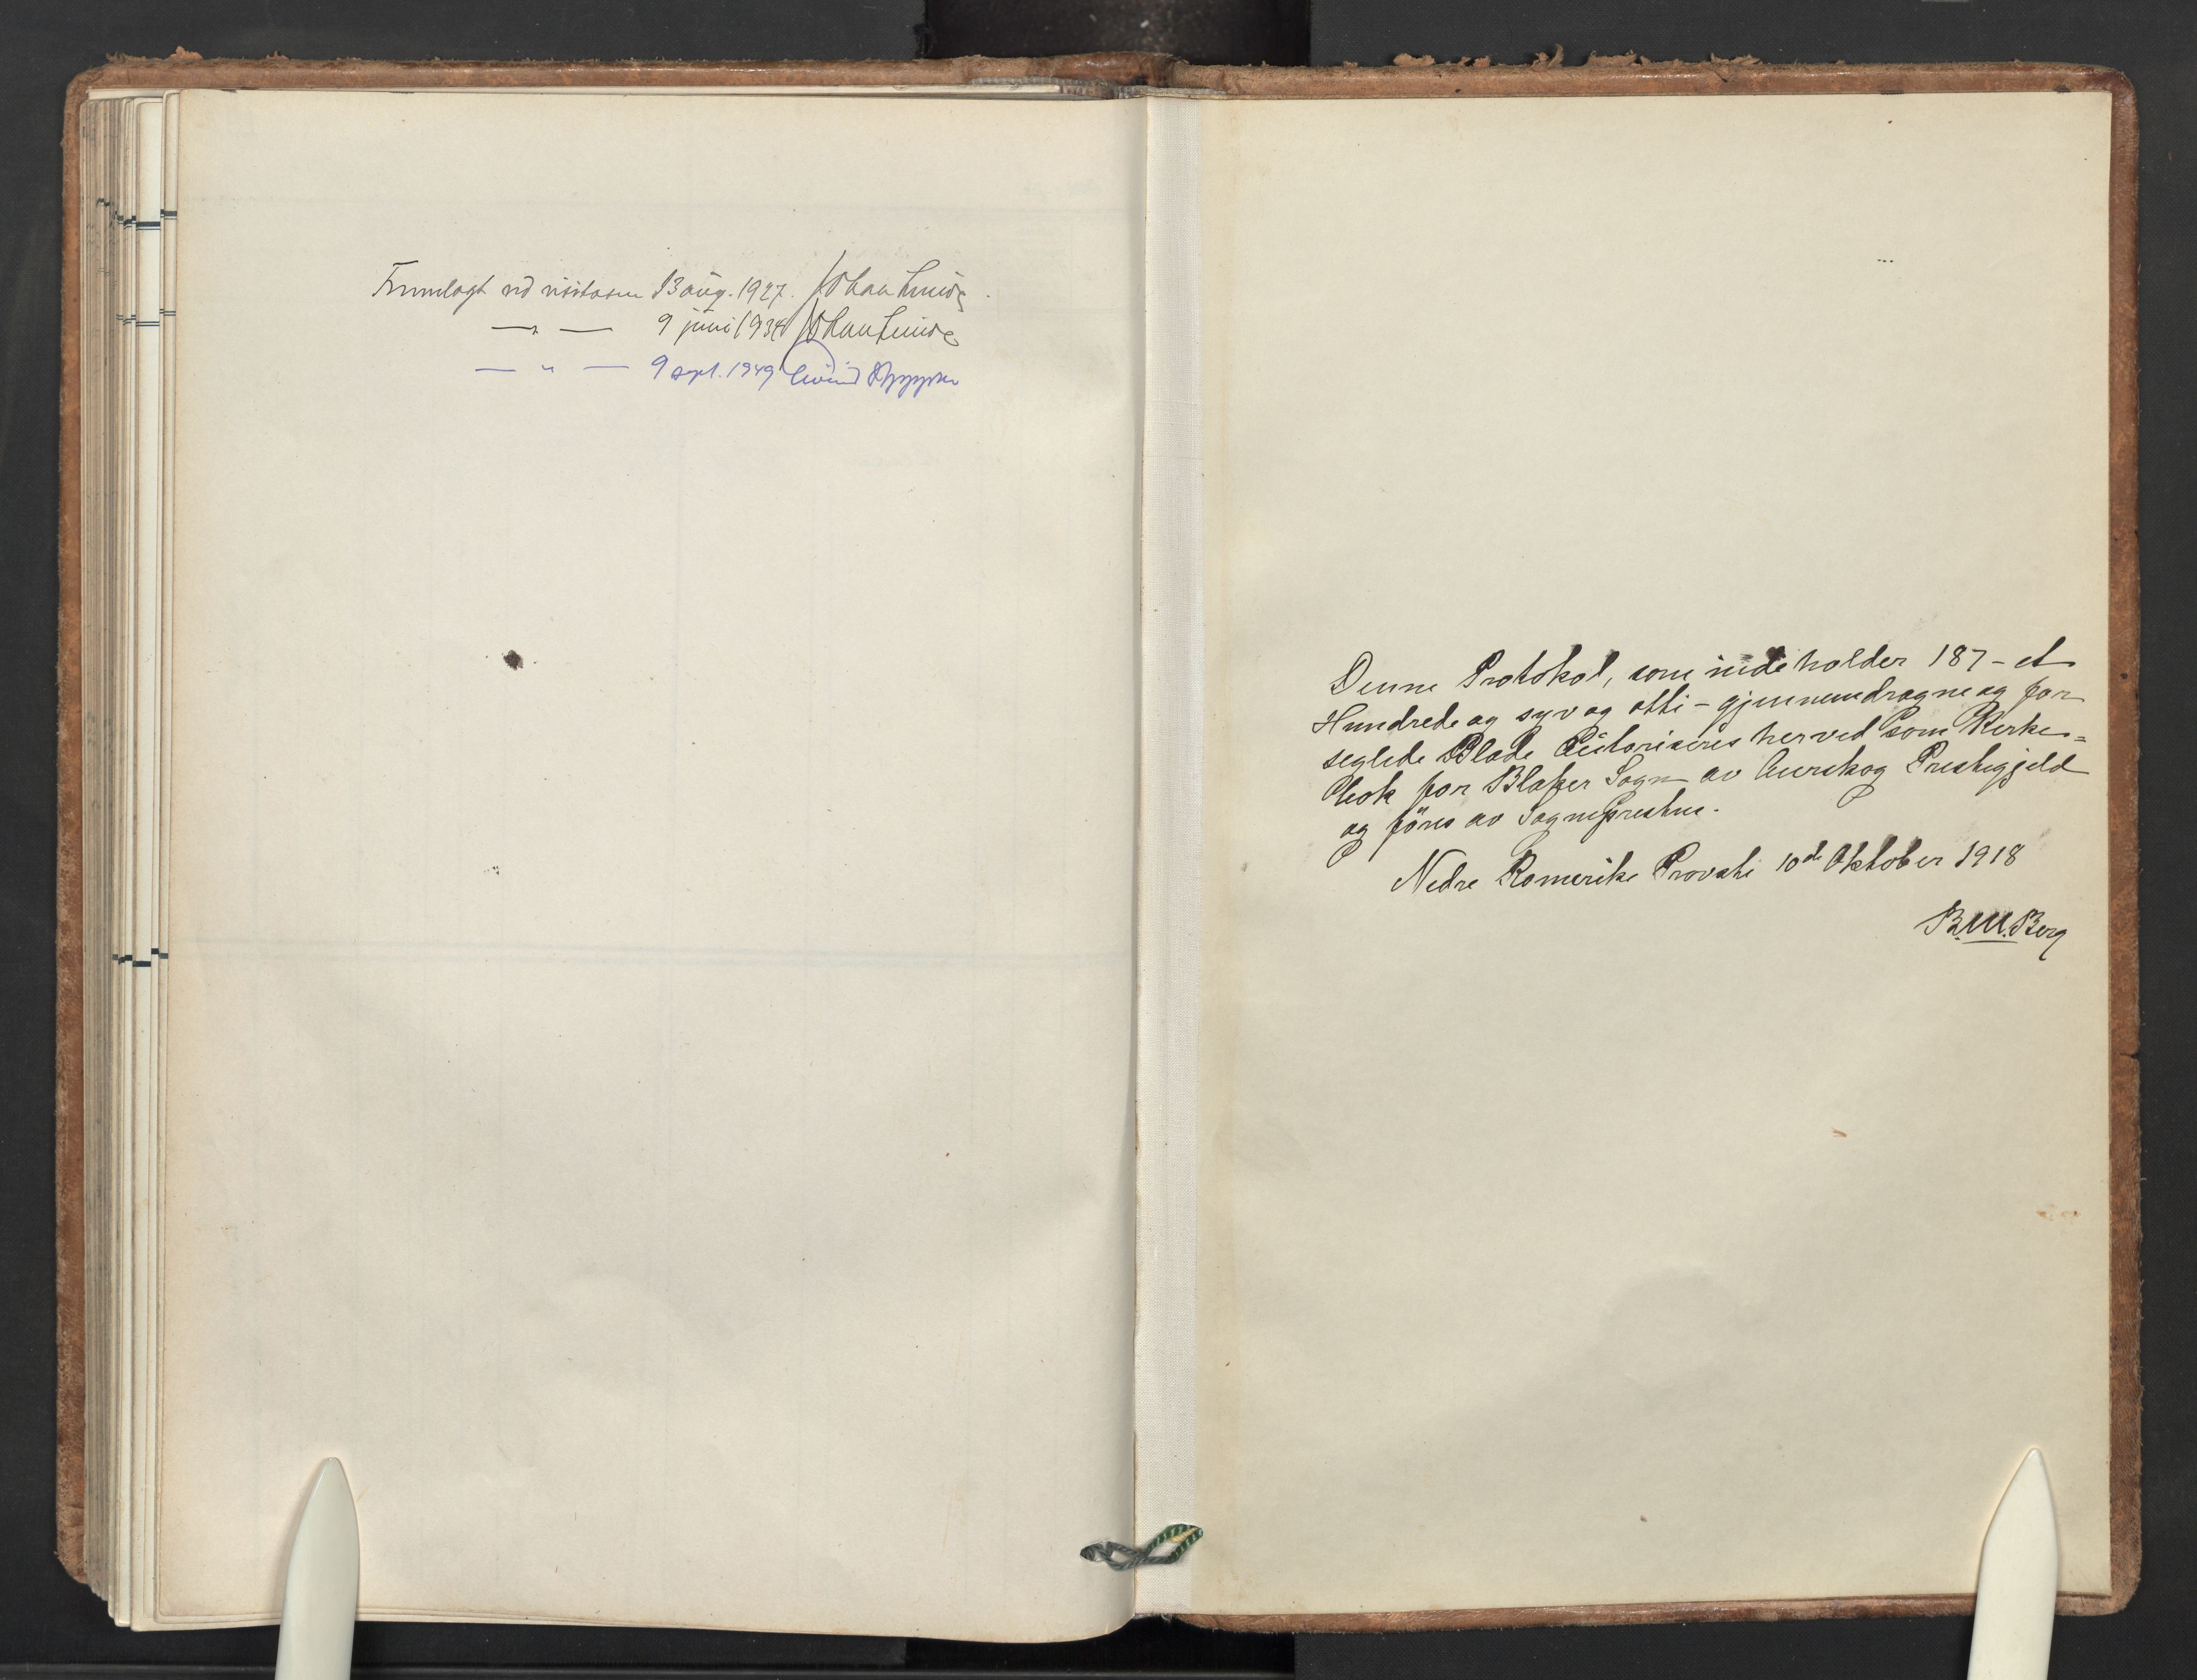 Fremlagt ved visitasen 13 aug. 1927. Johan Lunde.
— " — 9 juni 1934 Johan Lunde
— " — 9 sept. 1949 Eivind Berggrav
Denne Protokol, som indeholder 187 - et
Hundrede og syv og otti - gjennemdragne og for
seglede Blade autoriseres herved som Kirke=
bok for Blaker Sogn av Aurskog Prestegjeld
og føres av Sognepresten.
Nedre Romerike Provsti 10de Oktober 1918
B. M. Berg